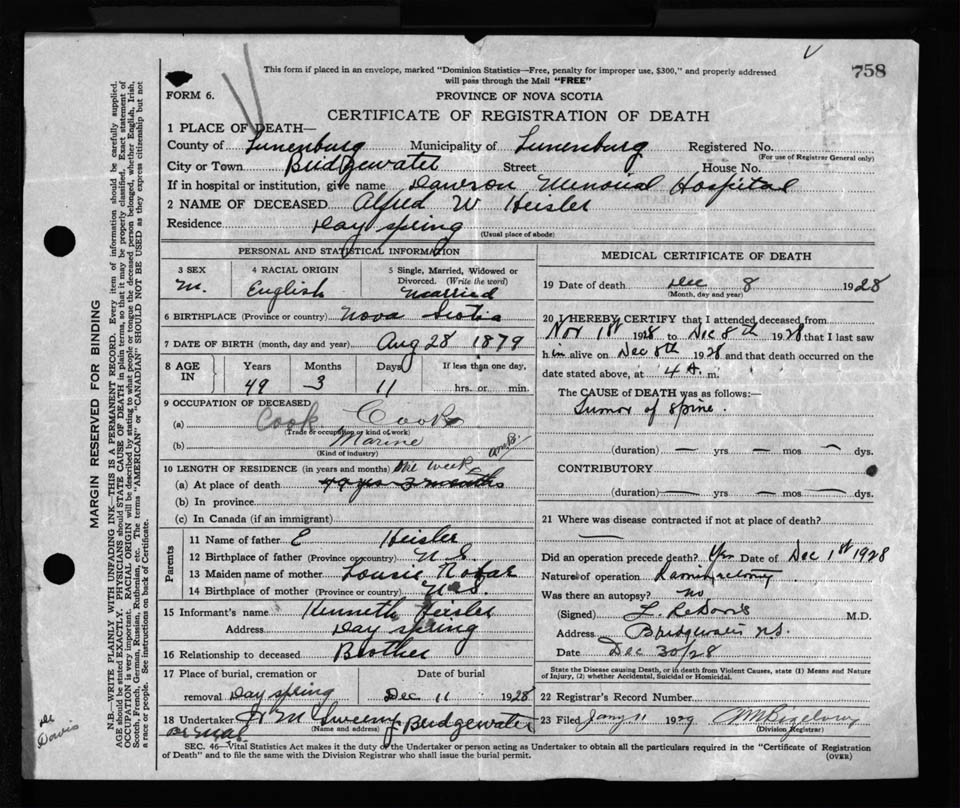 This form if placed in an envelope, marked "Dominion Statistics—Free, penalty for improper use, $300," and properly addressed
will pass through the Mail "FREE"
758
FORM 6.
PROVINCE OF NOVA SCOTIA
CERTIFICATE OF REGISTRATION OF DEATH
1 PLACE OF DEATH—
County of Lunenburg Municipality of Lunenburg Registered No.
(For use of Registrar General only)
City or Town Bridgewater Street House No.
If in hospital or institution, give name Dawson Memorial Hospital
2 NAME OF DECEASED Alfred W Heisler
Residence Day spring
(Usual place of abode)
PERSONAL AND STATISTICAL INFORMATION
3 SEX 4 RACIAL ORIGIN 5 Single, Married, Widowed or
Divorced. (Write the word)
M. English Married
6 BIRTHPLACE (Province or country) Nova Scotia
7 DATE OF BIRTH (month, day and year) Aug 28 1879
8 AGE IN Years Months Days If less than one day,
49 3 11 hrs. or min.
9 OCCUPATION OF DECEASED
(a) Cook Cook
(Trade or occupation or kind of work)
(b) Marine
(Kind of industry)
10 LENGTH OF RESIDENCE (in years and months) One week
(a) At place of death 49 yrs 3 months
(b) In province
(c) In Canada (if an immigrant)
Parents
11 Name of father E Heisler
12 Birthplace of father (Province or country) N S
13 Maiden name of mother Lousie
14 Birthplace of mother (Province or country) N.S.
15 Informant's name Kenneth Heisler
Address Day spring
16 Relationship to deceased Brother
17 Place of burial, cremation or Date of burial
removal Day spring Dec 11 1928
18 Undertaker Bridgewater
(Name and address)
MEDICAL CERTIFICATE OF DEATH
19 Date of death Dec 8 1928
(Month, day and year)
20 I HEREBY CERTIFY that I attended deceased from
Nov 1st 1928 to Dec 8th 1928 that I last saw
him alive on Dec 8th 1928 and that death occurred on the
date stated above, at 4 A. m.
The CAUSE of DEATH was as follows:—
Tumor of spine.
(duration) yrs mos dys.
CONTRIBUTORY
(duration) yrs mos dys.
21 Where was disease contracted if not at place of death?
Did an operation precede death? Yes Date of Dec 1st 1928
Nature of operation Laminectomy
Was there an autopsy? no
(Signed) M.D.
Address Bridgewater N.S.
Date Dec 30/28
State the Disease causing Death, or in death from Violent Causes, state (1) Means and Nature
of Injury, (2) whether Accidental, Suicidal or Homicidal.
22 Registrar's Record Number
23 Filed Jany 11 1929
(Division Registrar)
SEC. 46—Vital Statistics Act makes it the duty of the Undertaker or person acting as Undertaker to obtain all the particulars required in the "Certificate of Registration
of Death" and to file the same with the Division Registrar who shall issue the burial permit.
(OVER)
MARGIN RESERVED FOR BINDING
N.B.—WRITE PLAINLY WITH UNFADING INK—THIS IS A PERMANENT RECORD. Every item of information should be carefully supplied.
AGE should be stated EXACTLY. PHYSICIANS should STATE CAUSE OF DEATH in plain terms, so that it may be properly classified. Exact statement of
OCCUPATION is very important. RACIAL ORIGIN will be described by stating to what people or tongue the deceased person belonged, whether English, Irish,
Scotch, French, German, Russian, Ruthenian, etc. The terms "AMERICAN" or "CANADIAN" SHOULD NOT BE USED as they express citizenship but not
a race or people. See instructions on back of Certificate.
Davis